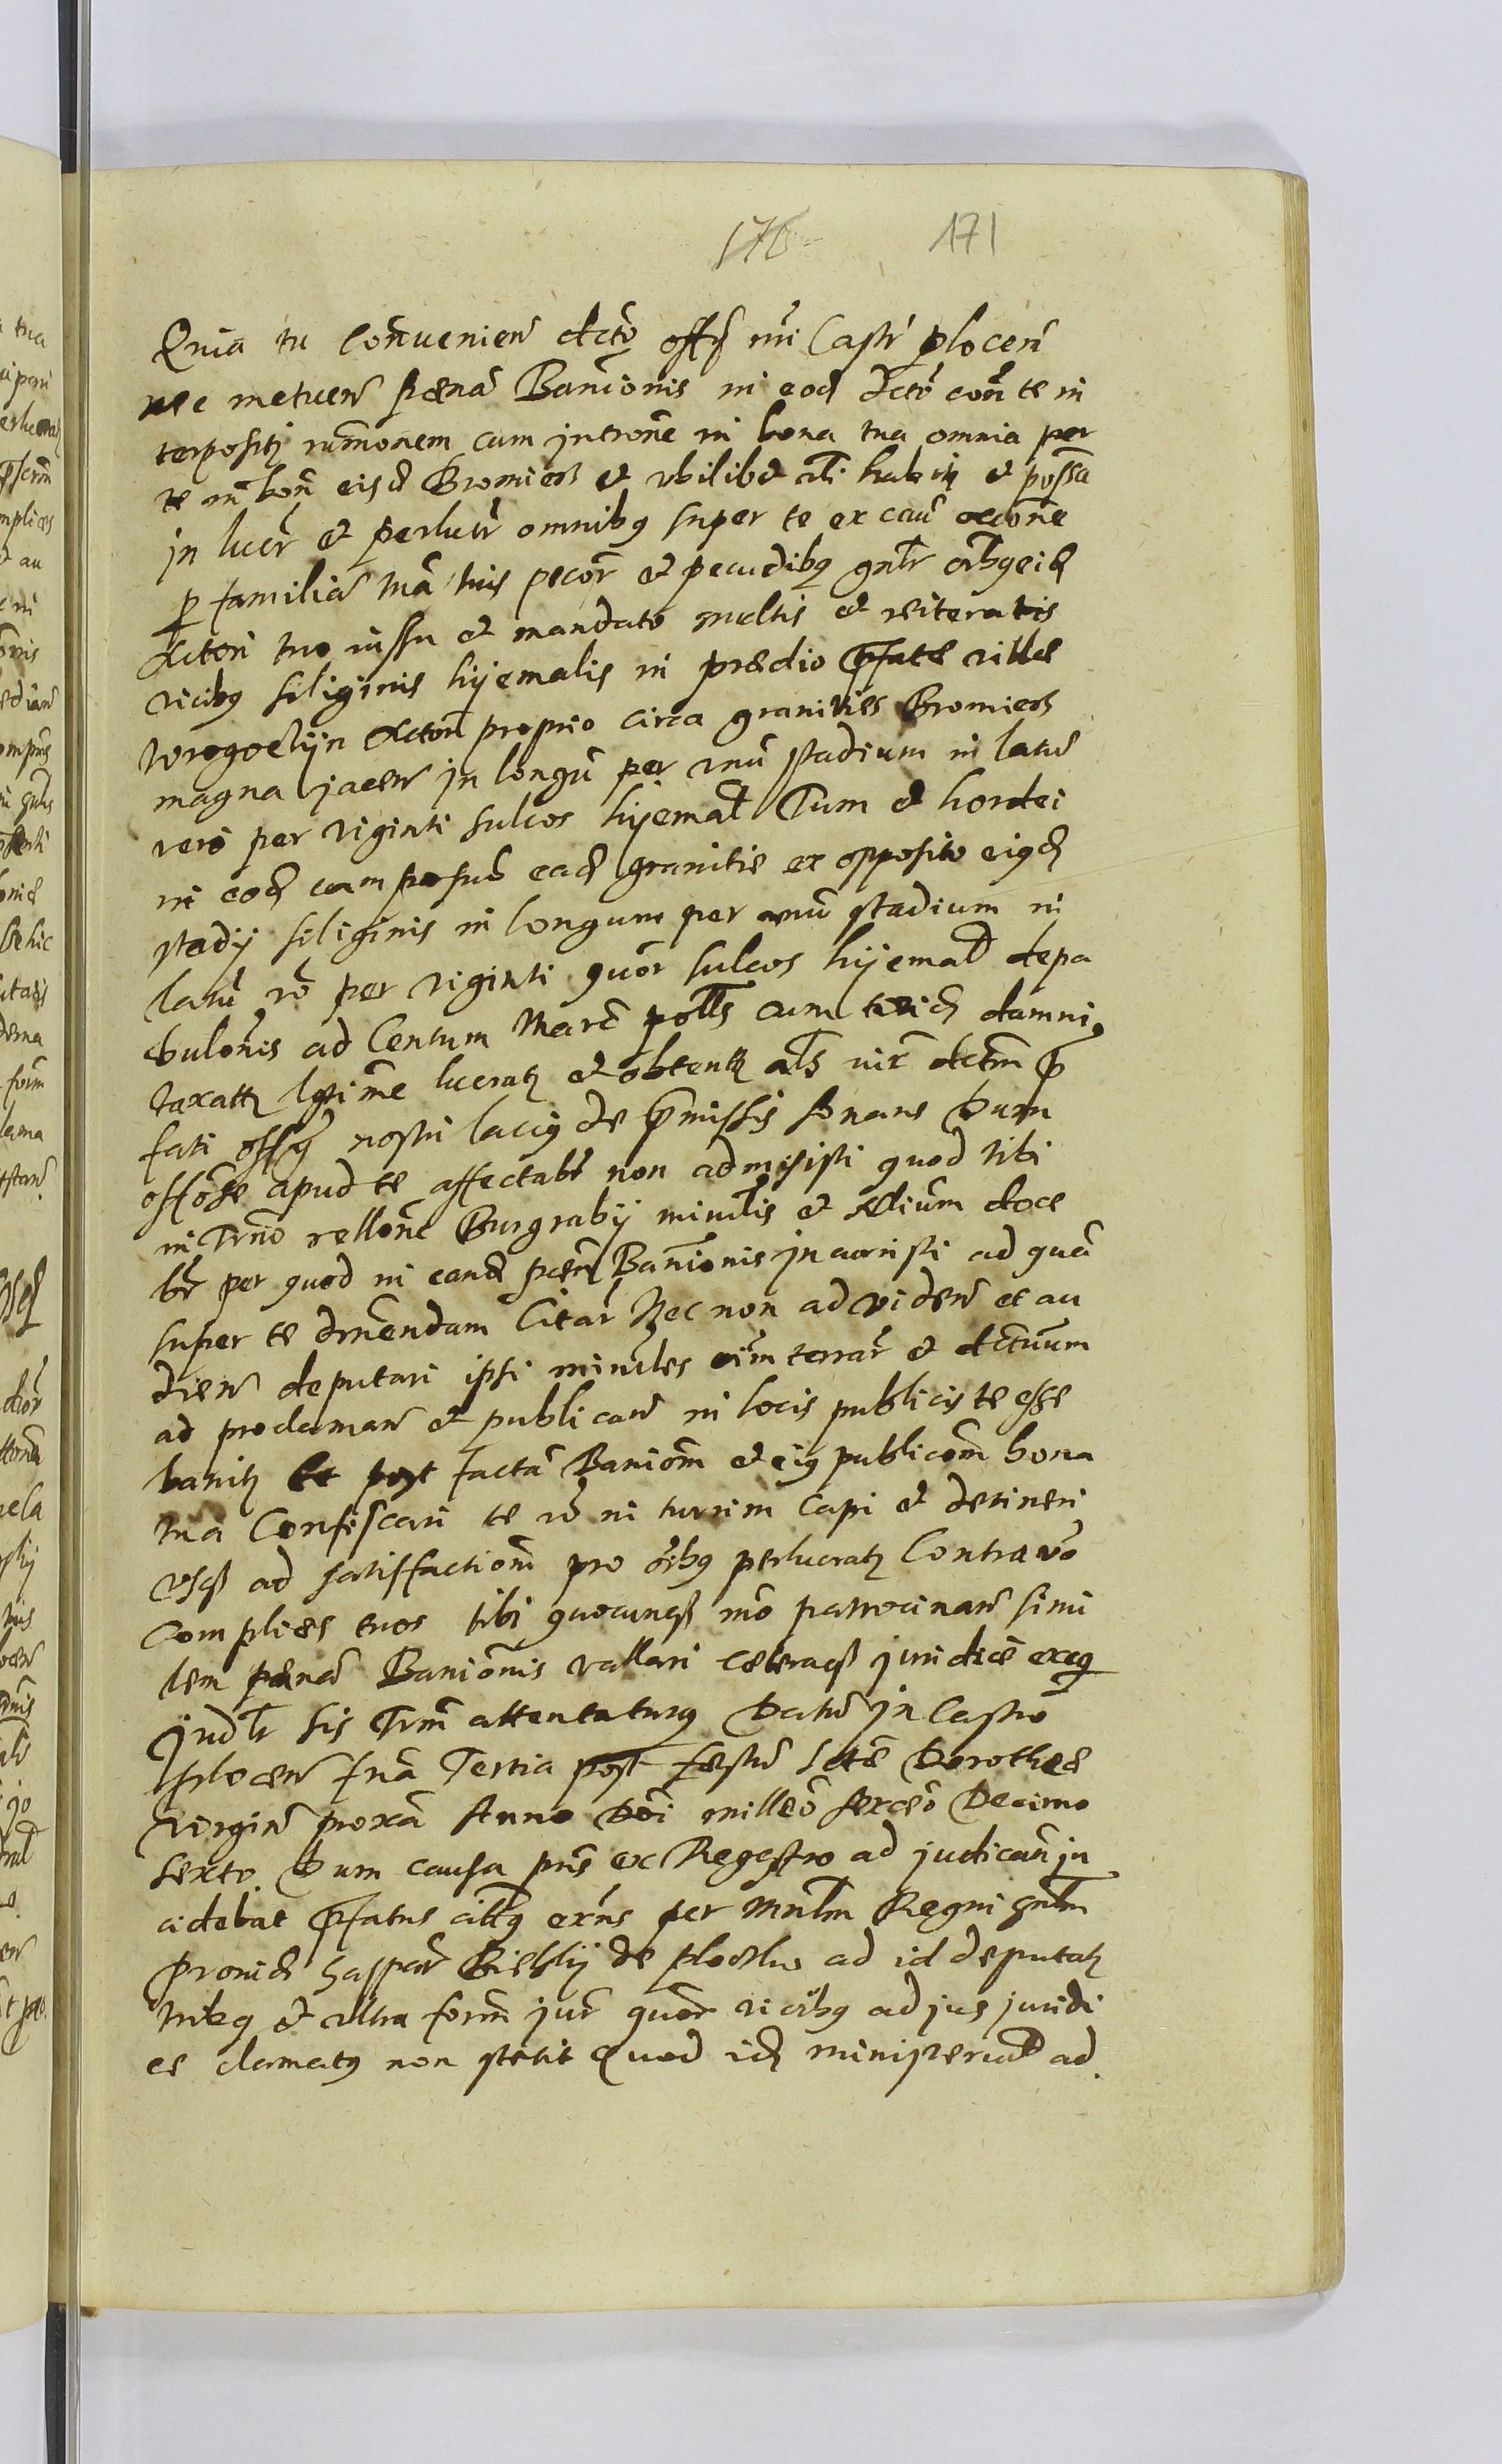 170 171
Quia tu Convenien dcto offi nri Castr plocen
nec metuen pœnā Banionis in eod dcto con te in
terpositi rumonem cum introne in bona tua omnia per
te in bon eisd Bromierz et ubilibet habit et possa
in lucr et perlucr omnibus super te ex cau
p familiā tuā tuis pecor et pecudibus gnlr
Actori tuo iussu et mandato multis et reiteratis
vicibus siliginis hyemalis in prædio pfatæ villæ
Actori proprio circa granities Bromierz
magna jacen in longū per unū stadium in latū
vero per viginti sulcos hyemal Tum et hordei
in eod campo sub ead granitie ex opposito eiusd
stadij siliginis in longum per unū stadium in
latū vo per viginti quor sulcos hyemal depa
bulonis ad Centum Marc polls cum damni
taxatt lgtime lucrat et obtent als dctm p
fati offij nostri lacius de pmissis sonans Dum
offose apud te affectabr non admisisti quod tibi
in Trno rellone Burgrabij minilis et
br per quod in eand pœn Banionis incurristi ad quā
super te dnendam Citar Nec non ad viden et au
dien deputari ipsi miniles oim terrar et dctuum
ad proclaman et publican in locis publicis te esse
banit Et post factā Baniom et eius publicom bona
tua Confiscari te vo in turrim capi et detineri
usq ad satisfactiom pro oibus perlucrat Contra vo
Complices tuos tibi quocunq mo patrocinan simi
lem pœnā Banionis vallari cæteraq juridice
Judlr sis Trm attentaturus Datū in Castro
plocen fria Tertia post festū Sctæ Dorotheæ
Virgin proxa Anno Dni milleo sexceo Decimo
sexto. Dum causa prns ex Regestro ad judican in
cidebat pfatus citus exns per Mnlm Regni gnlm
provid Gaspar Bielsky de ad id deputat
et ultra form jur quor vicibus ad jus juridi
ce clamatus non stetit Quod id ministerial ad